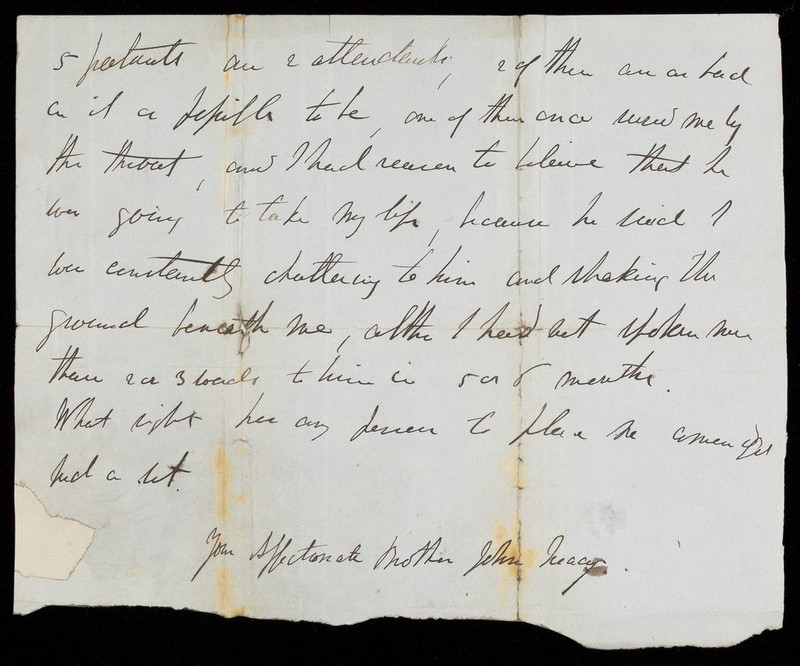 5 patients an 2 attendants, 2 of them are as bad
as it is possible to be, one of them once seized me by
the throat, and I had reason to believe that he
was going to take my life, because he said I
was constantly chattering to him and shaking the
ground beneath me, altho I had not spoken more
than 2 or 3 words to him in 5 or 6 months.
What right has any person to place me amongst
such a set.
Your Affectionate Brother John